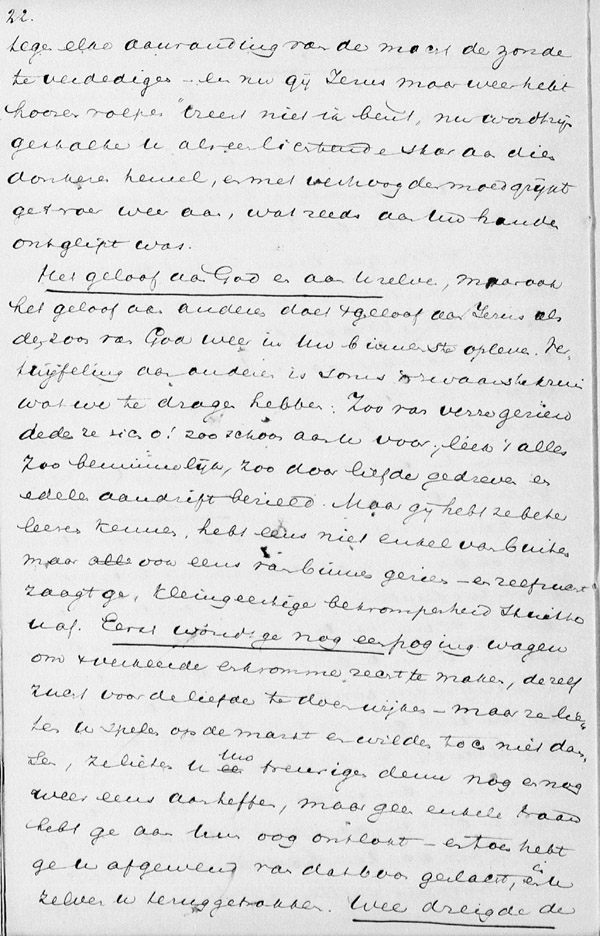 22.
tegen elke aanranding van de macht der zonde
te verdedigen – en nu gij Jezus maar weer hebt
hooren roepen "vreest niet ik ben 't, nu wordt zijn
gestalte u als een lichtende ster aan dien
donkeren hemel, en met verhoogden moed grijpt
ge t roer weer aan, wat reeds aan Uw handen
ontglipt was.
Het geloof aan God en aan Uzelve, maar ook
het geloof aan anderen doet t geloof aan Jezus als
den zoon van God weer in Uw binnenste opleven. Ver-
twijfeling aan anderen is soms t zwaarste kruis
wat we te dragen hebben. Zoo van verre gezien
deden ze zich o! zoo schoon aan U voor, leek 't alles
zoo beminnelijk, zoo door liefde gedreven en
edele aandrift bezield. Maar gij hebt ze beter
leeren kennen, hebt eens niet enkel van buiten
maar ook eens van binnen gezien – en zelfzucht
zaagt ge, kleingeestige bekrompenheid stuitte
U af. Eerst wondt ge nog een poging wagen
om t verkeerde en kromme recht te maken, de zelf
zucht voor de liefde te doen wijken – maar ze lie-
ten U spelen op de markt en wilden toch niet dan-
sen, ze lieten U Uw treurigen deun nog en nog
weer eens aanheffen, maar geen enkele traan
hebt ge aan hun oog ontlokt – en toen hebt
ge U afgewend van dat boos geslacht, en in U
zelven U teruggetrokken. Wee dreigde de